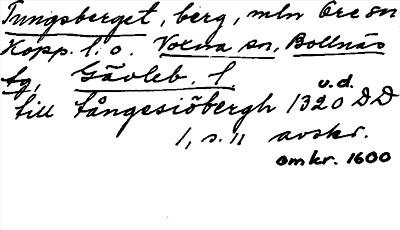 Tungsberget, berg, mln Ore sn
Kopp. l. o. Voxna sn, Bollnäs
tg, Gävleb. l.
u.d.
till tångesiöbergh 1320 DD
1, s. 11 avskr.
omkr. 1600